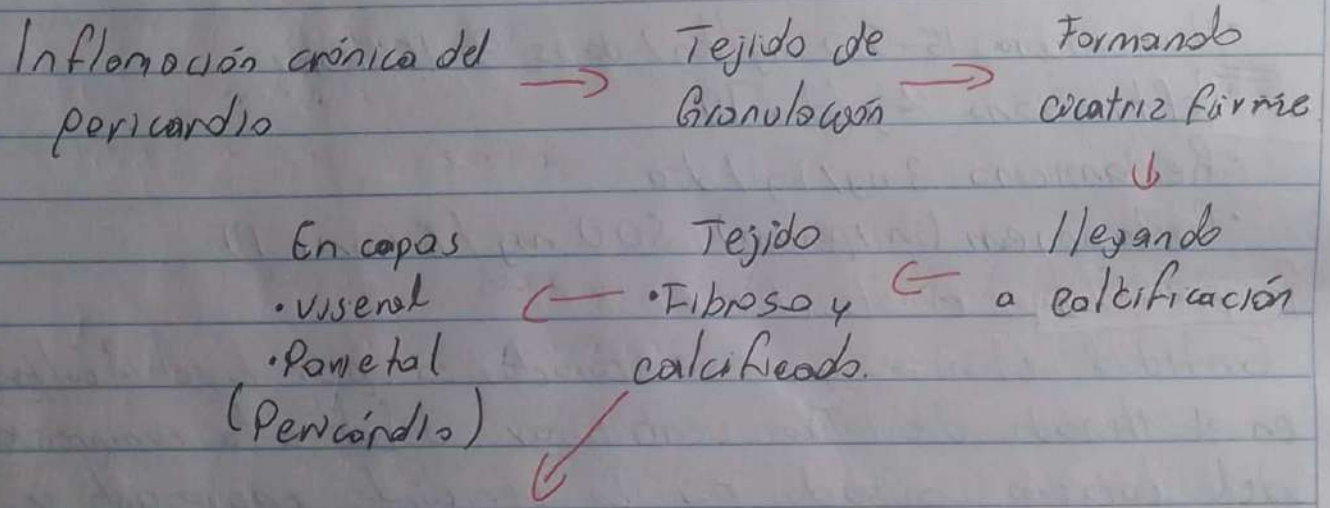 Inflamación crónica del
pericardio
Tejido de
Granulación
Formando
cicatriz firme
llegando
a calcificación
Tejido
•Fibroso y
calcificado.
En capas
•viseral
•Parietal
(Pericárdio)